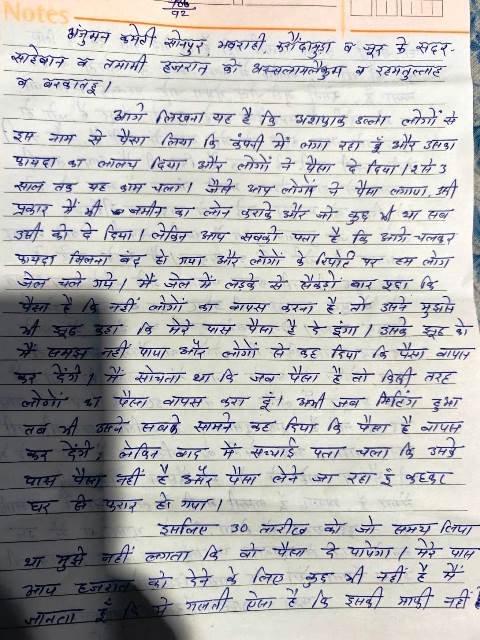 Notes
92
अंजुमन कमेटी सोनपुर, भवराही, करौंदामुड़ा व चूर के सदर-
साहेबान व तमामी हजरात को अस्सलामलैकुम व रहमतुल्लाह
व बरकातहू।
आगे लिखना यह है कि अशफाक उल्ला लोगों से
इस नाम से पैसा लिया कि कंपनी में लगा रहा हूँ और उसका
फायदा का लालच दिया और लोगों ने पैसा दे दिया। 2 से 3
साल तक यह काम चला। जैसे आप लोगों ने पैसा लगाया, उसी
प्रकार मैं भी जमीन का लोन कराके और जो कुछ भी था सब
उसी को दे दिया। लेकिन आप सबको पता है कि आगे चलकर
फायदा मिलना बंद हो गया और लोगों के रिपोर्ट पर हम लोग
जेल चले गये। मैं जेल में लड़के से सैकड़ों बार पूछा कि
पैसा है कि नहीं लोगों का वापस करना है, तो उसने मुझसे
भी झूठ कहा कि मेरे पास पैसा है दे दूंगा। उसके झूठ को
मैं समझ नहीं पाया और लोगों से कह दिया कि पैसा वापस
कर देंगे। मैं सोचता था कि जब पैसा है तो किसी तरह
लोगों का पैसा वापस करा दूं। अभी जब मिटिंग हुआ
तब भी उसने सबके सामने कह दिया कि पैसा है वापस
कर देंगे, लेकिन बाद में सच्चाई पता चला कि उसके
पास पैसा नहीं है और पैसा लेने जा रहा हूँ कहकर
घर से फरार हो गया।
इसलिए 30 तारीख को जो समय लिया
था मुझे नहीं लगता कि वो पैसा दे पायेगा। मेरे पास
आप हजरात को देने के लिए कुछ भी नहीं है मैं
जानता हूँ कि ये गलती ऐसा है कि इसकी माफी नहीं